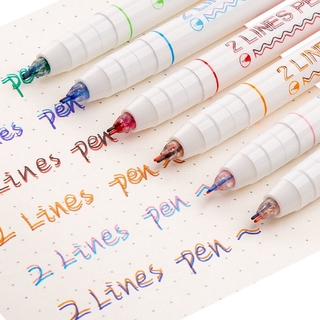 2 LINES PEN
2 LINES PEN
Lines pen
Lines pen
2 Lines pen
2 Lines pen
2 Lines pen